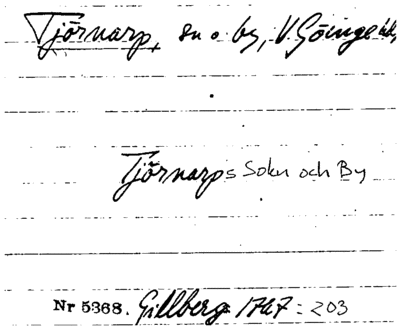 Tjörnarp, sn o by, V. Göinge hd,
Tjörnarps Sokn och By
Nr 5368. Gillberg 1767 : 203